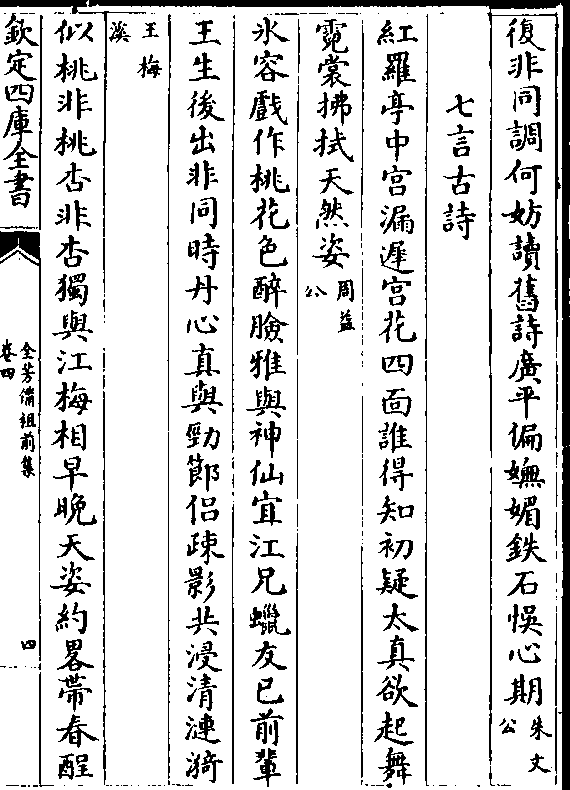 復非同調何妨讀舊詩廣平偏嫵媚鉄石悞心期朱文公
七言古詩
紅羅亭中宮漏遲宮花四面誰得知初疑太真欲起舞
霓裳拂拭天然姿周益公
氷容戲作桃花色醉臉雅與神仙宜江兄蠟友已前輩
王生後出非同時丹心真與勁節侣疎影共浸清漣漪
王梅溪
似桃非桃杏非杏獨與江梅相早晚天姿約畧帶春酲
欽定四庫全書
全芳備祖前集
卷四
四